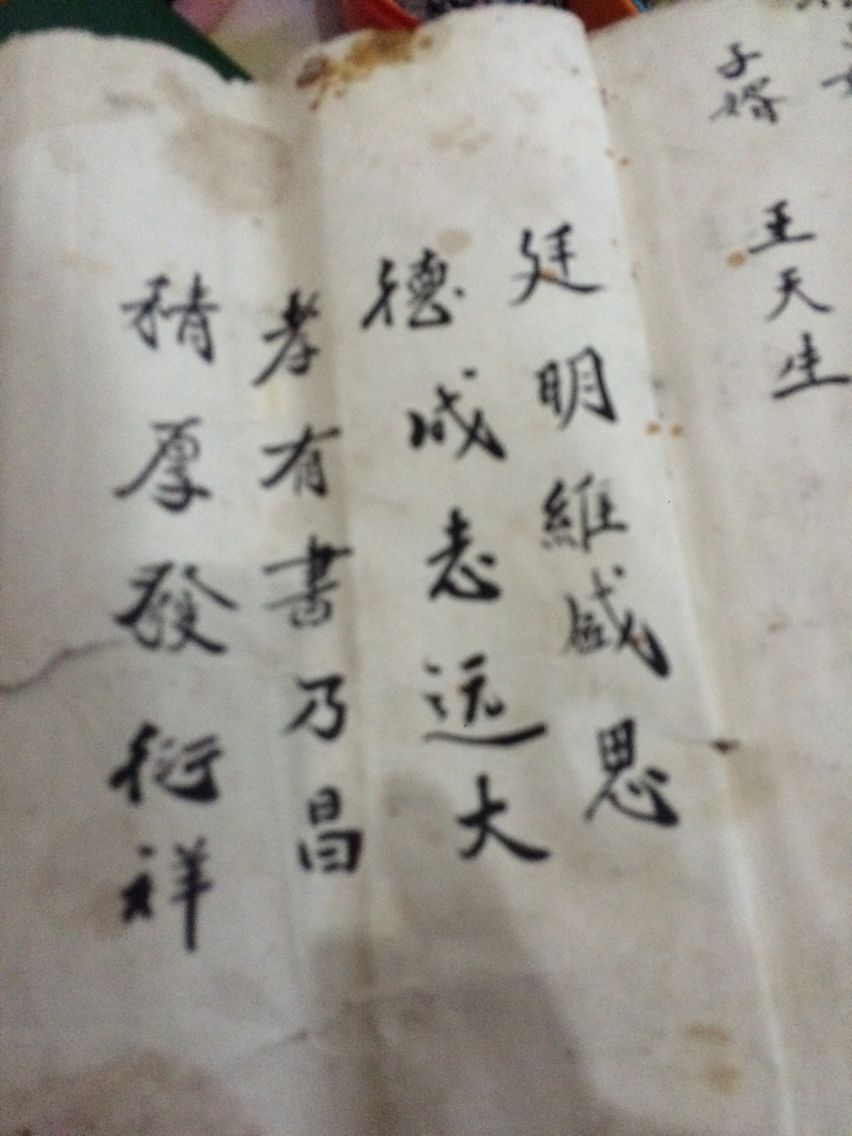 子婿 王天生
廷明維咸思
德成志远大
孝有書乃昌
積厚發衍祥